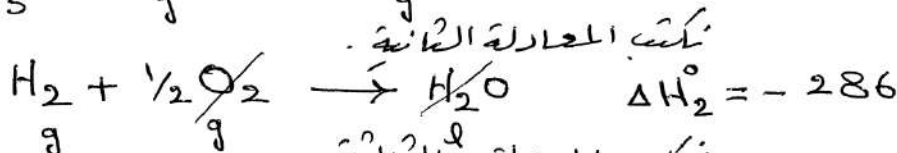 نكتب المعادلة الثانية .
H₂ + 1/2 O₂ → H₂O ΔH₂° = - 286
g g l